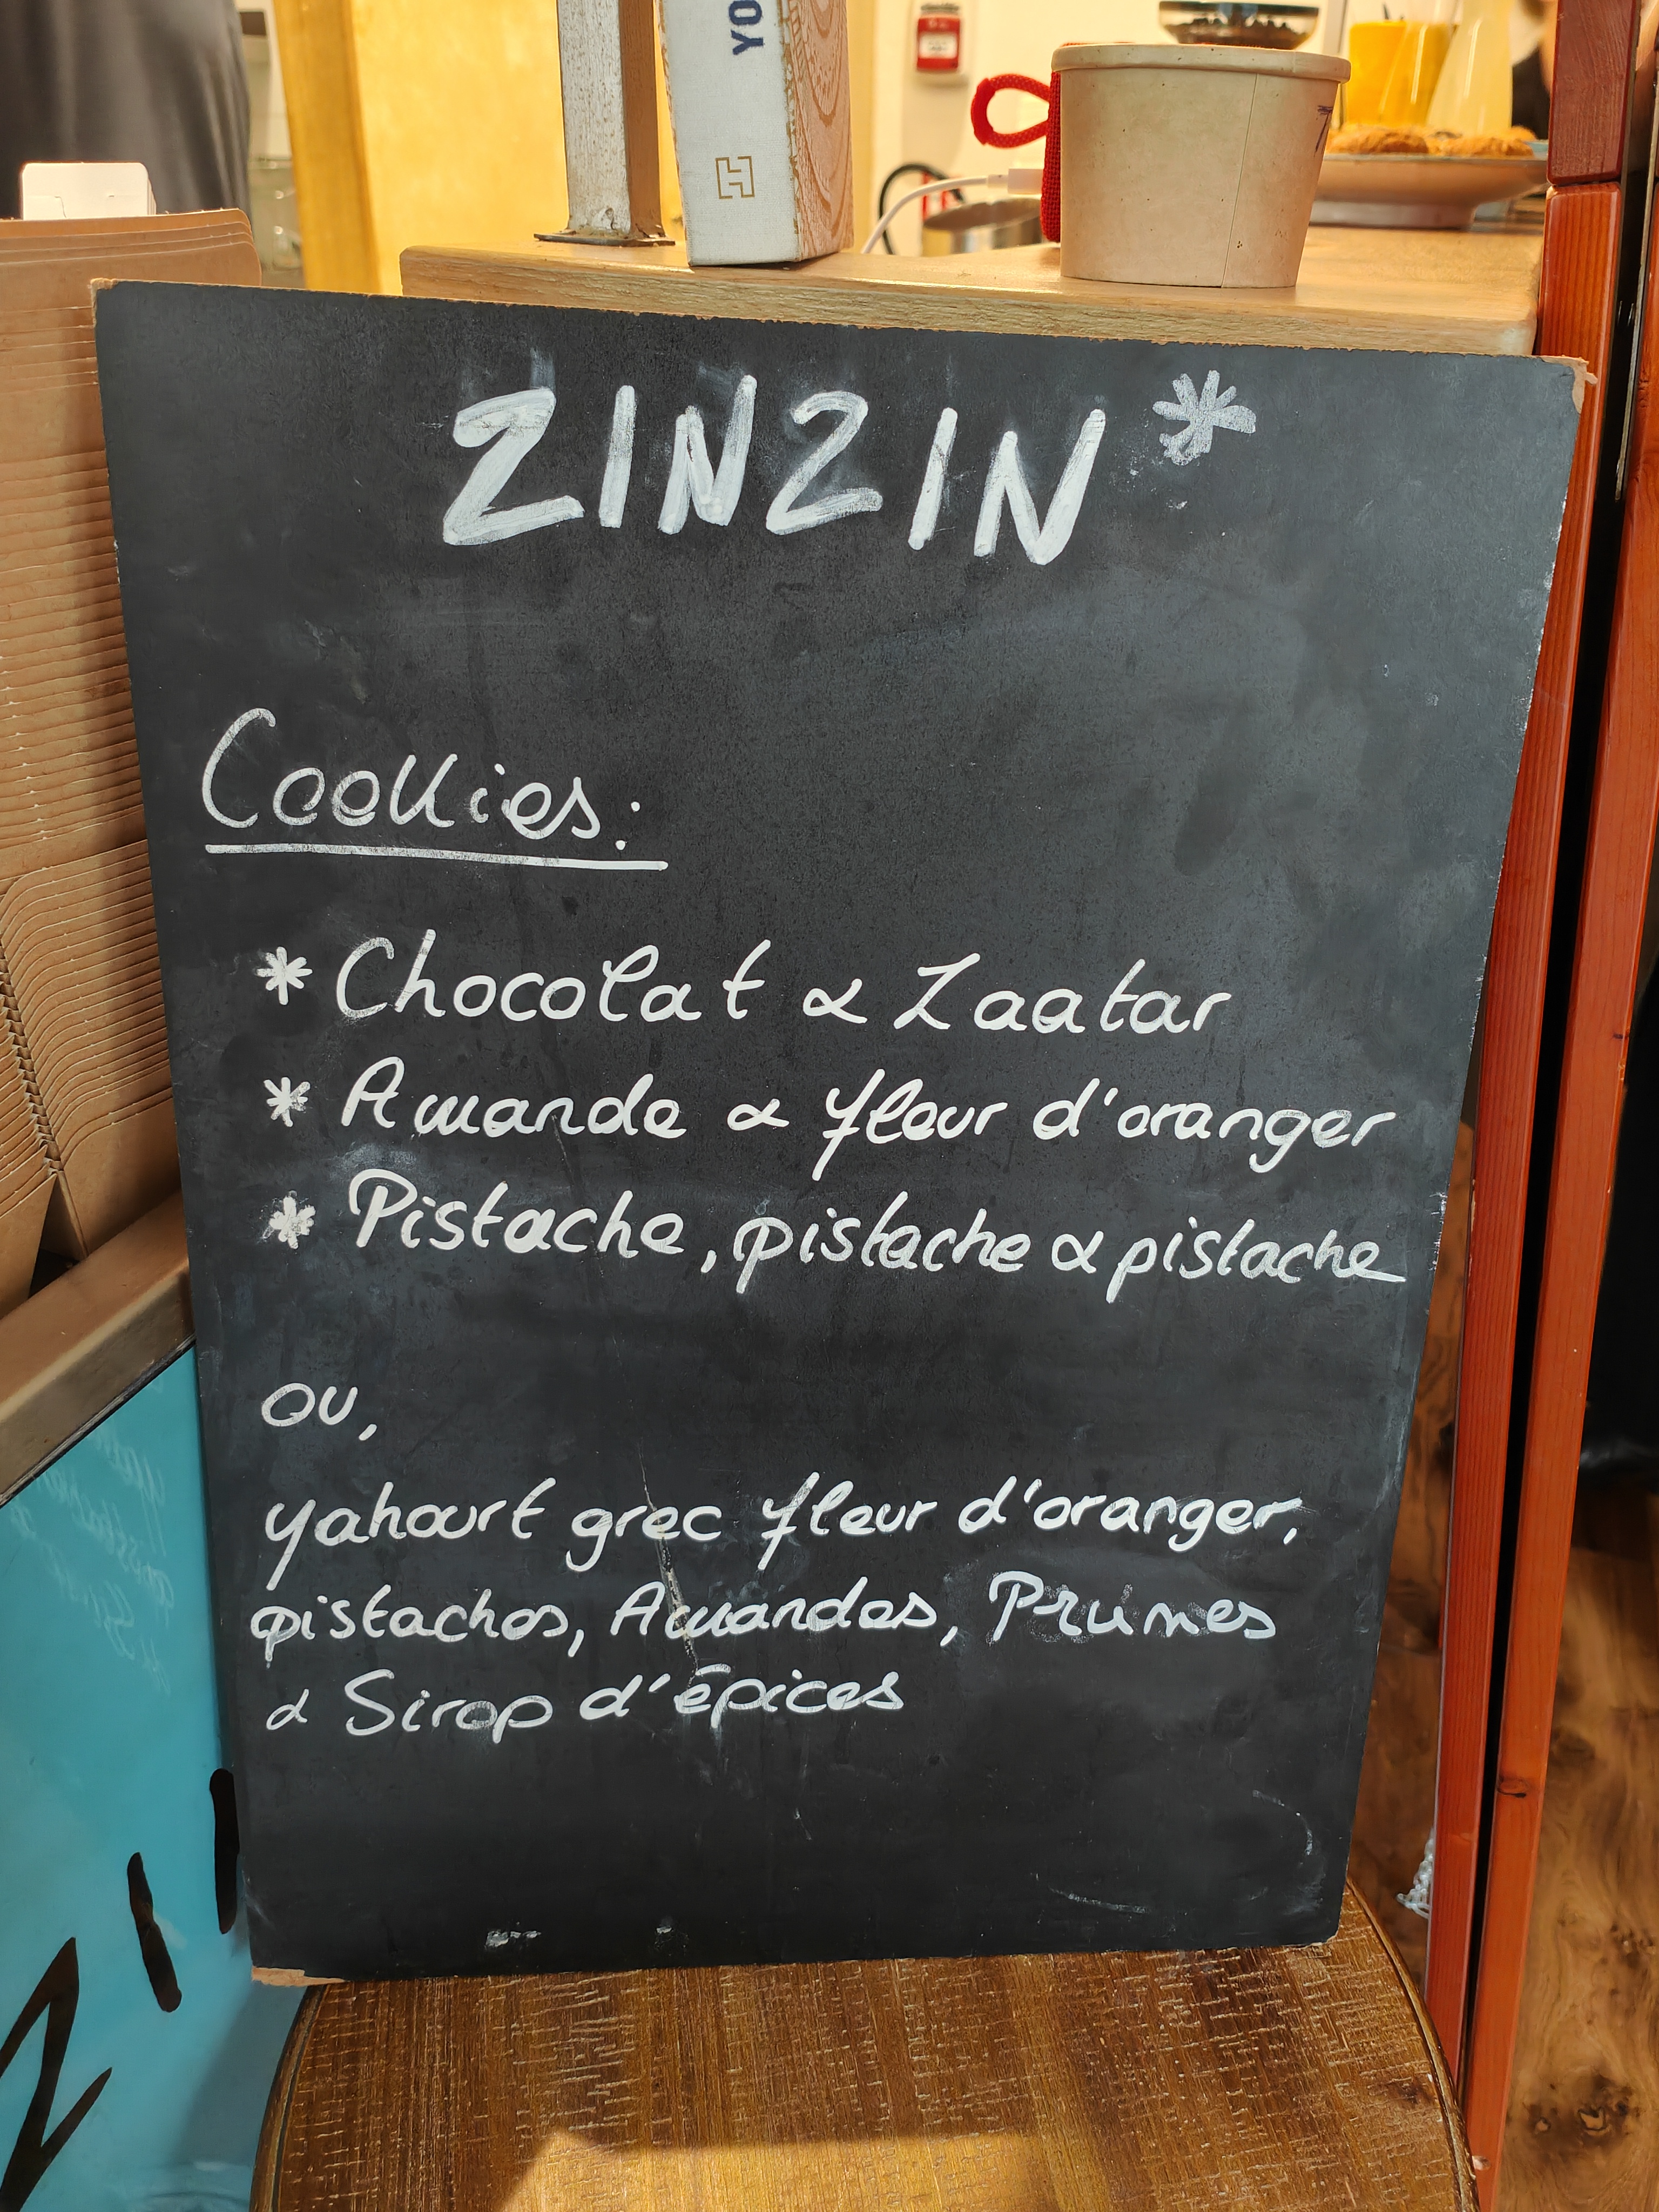 YO
ZINZIN*
Cookies:
* Chocolat & Zaatar
* Amande & fleur d'oranger
* Pistache, pistache & pistache
ou,
yahourt grec fleur d'oranger,
pistaches, Amandes, Prunes
& Sirop d'épices
ZI